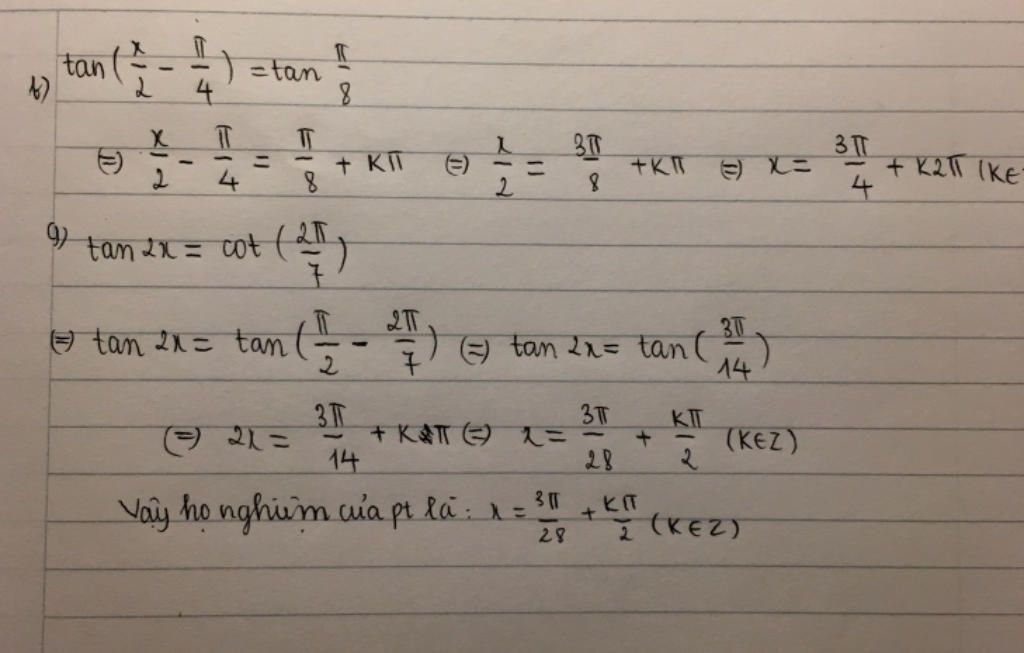 b) tan(x/2 - π/4) = tan π/8
(=) x/2 - π/4 = π/8 + Kπ (=) x/2 = 3π/8 + Kπ (=) x = 3π/4 + K2π (K∈
g) tan 2x = cot (2π/7)
(=) tan 2x = tan(π/2 - 2π/7) (=) tan 2x = tan(3π/14)
(=) 2x = 3π/14 + Kπ (=) x = 3π/28 + Kπ/2 (K∈Z)
Vậy họ nghiệm của pt là: x = 3π/28 + Kπ/2 (K∈Z)